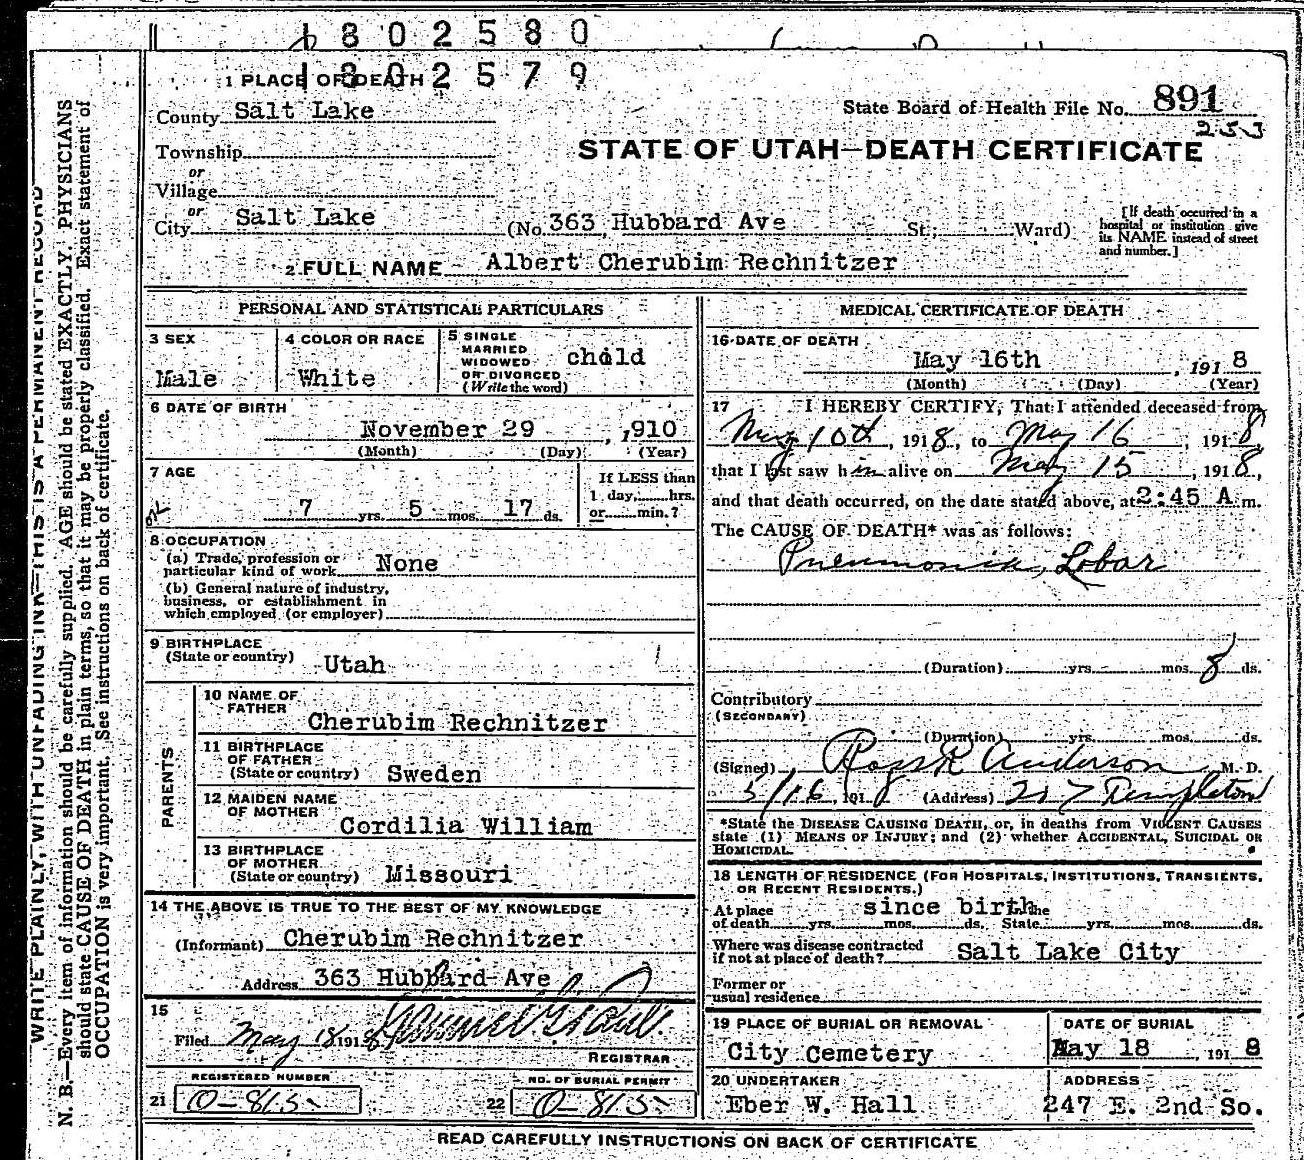 1302580
1302579
1 PLACE OF DEATH
County Salt Lake
State Board of Health File No. 891
253
Township
STATE OF UTAH—DEATH CERTIFICATE
or
Village
or
City Salt Lake (No. 363 Hubbard Ave St.; Ward)
[If death occurred in a
hospital or institution give
its NAME instead of street
and number.]
2 FULL NAME Albert Cherubim Rechnitzer
PERSONAL AND STATISTICAL PARTICULARS
3 SEX
Male
4 COLOR OR RACE
White
5 SINGLE
MARRIED
WIDOWED
OR DIVORCED
(Write the word)
child
6 DATE OF BIRTH
November 29, 1910
(Month) (Day) (Year)
7 AGE
7 yrs. 5 mos. 17 ds.
If LESS than
1 day, hrs.
or min.?
8 OCCUPATION
(a) Trade, profession or
particular kind of work None
(b) General nature of industry,
business, or establishment in
which employed (or employer)
9 BIRTHPLACE
(State or country) Utah
PARENTS
10 NAME OF
FATHER
Cherubim Rechnitzer
11 BIRTHPLACE
OF FATHER
(State or country) Sweden
12 MAIDEN NAME
OF MOTHER
Cordilia William
13 BIRTHPLACE
OF MOTHER
(State or country) Missouri
14 THE ABOVE IS TRUE TO THE BEST OF MY KNOWLEDGE
(Informant) Cherubim Rechnitzer
Address 363 Hubbard Ave
15
Filed May 18 1918
REGISTRAR
REGISTERED NUMBER
21 O-815
NO. OF BURIAL PERMIT
22 O-815
MEDICAL CERTIFICATE OF DEATH
16 DATE OF DEATH
May 16th, 1918
(Month) (Day) (Year)
17 I HEREBY CERTIFY, That I attended deceased from
May 10th, 1918, to May 16, 1918,
that I last saw him alive on May 15, 1918,
and that death occurred, on the date stated above, at 2:45 A m.
The CAUSE OF DEATH* was as follows:
Pneumonia, Lobar
(Duration) yrs. mos. 8 ds.
Contributory
(SECONDARY)
(Duration) yrs. mos. ds.
(Signed) Ross R Anderson, M. D.
5/16, 1918 (Address) 207 Templeton
*State the DISEASE CAUSING DEATH, or, in deaths from VIOLENT CAUSES
state (1) MEANS OF INJURY; and (2) whether ACCIDENTAL, SUICIDAL OR
HOMICIDAL.
18 LENGTH OF RESIDENCE (FOR HOSPITALS, INSTITUTIONS, TRANSIENTS,
OR RECENT RESIDENTS.)
At place since birth In the
of death yrs. mos. ds. State yrs. mos. ds.
Where was disease contracted
if not at place of death? Salt Lake City
Former or
usual residence
19 PLACE OF BURIAL OR REMOVAL
City Cemetery
DATE OF BURIAL
May 18, 1918
20 UNDERTAKER
Eber W. Hall
ADDRESS
247 E. 2nd So.
READ CAREFULLY INSTRUCTIONS ON BACK OF CERTIFICATE
WRITE PLAINLY, WITH UNFADING INK—THIS IS A PERMANENT RECORD
N. B.—Every item of information should be carefully supplied. AGE should be stated EXACTLY. PHYSICIANS
should state CAUSE OF DEATH in plain terms, so that it may be properly classified. Exact statement of
OCCUPATION is very important. See instructions on back of certificate.